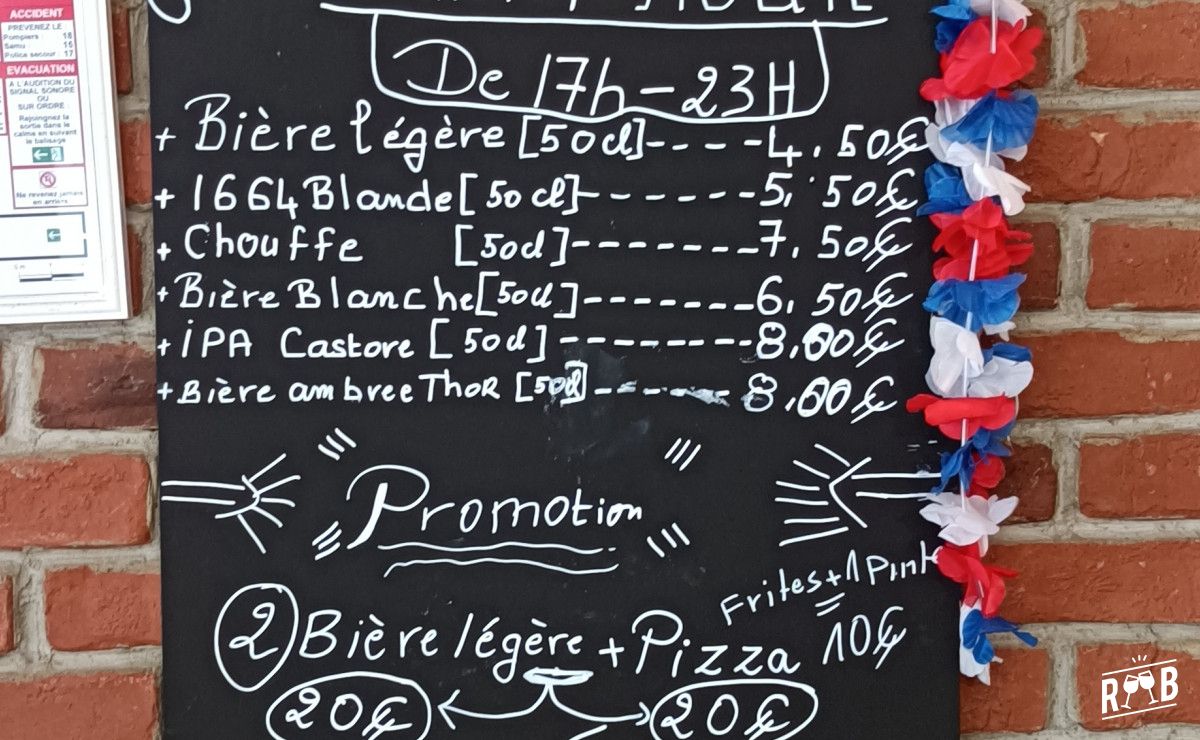 ACCIDENT
PREVENEZ LE
Pompiers 18
Samu 15
Police secour : 17
EVACUATION
A L'AUDITION DU
SIGNAL SONORE
OU
SUR ORDRE
Rejoingnez la
sortie dans le
calme en suivant
le balisage
Ne revenez jamais
en arrière
De 17h-23H
+ Bière légère [50cl]----4,50€
+ 1664 Blande [50 cl]-------5,50€
+ Chouffe [50cl]-------7,50€
+ Bière Blanche [50cl]-------6,50€
+ iPA Castore [50cl]--------8,00€
+ Bière ambree ThoR [50cl]------8,00€
Promotion
Frites+1 Pint
10€
2 Bière légère + Pizza
20€ 20€
R B